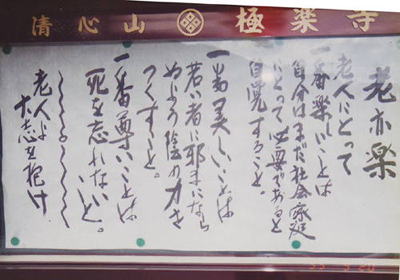 清心山 極楽寺
老亦楽
老人にとって
一番楽しいことは
自分はまだ社会家庭
にとって必要であると
自覚すること。
一番美しいことは
若い者に邪まになら
ぬよう陰の力を
つくすこと。
一番尊いことは
死を忘れないこと。
老人よ
大志を抱け